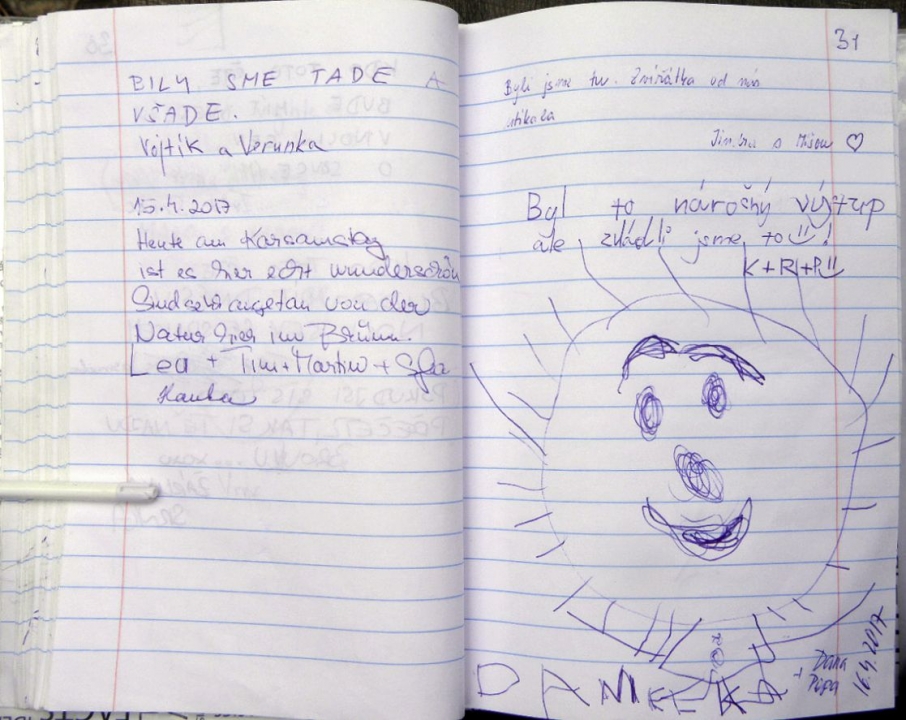 BILY SME TADE A
VŠADE.
Vojtík a Verunka
15.4.2017
Heute am Karsamstag
ist es hier echt wunderschön
Sind sehr angetan von der
Natur hier in Brünn.
Lea + Tim + Martin +
31
Byli jsme tu. Zvířátka od nás
utíkala
s Míšou ♡
Byl to nárošný výstup
ale zládli jsme to !
K + R + P
DANEČKA
+ Dana
Pepa
16.4.2017